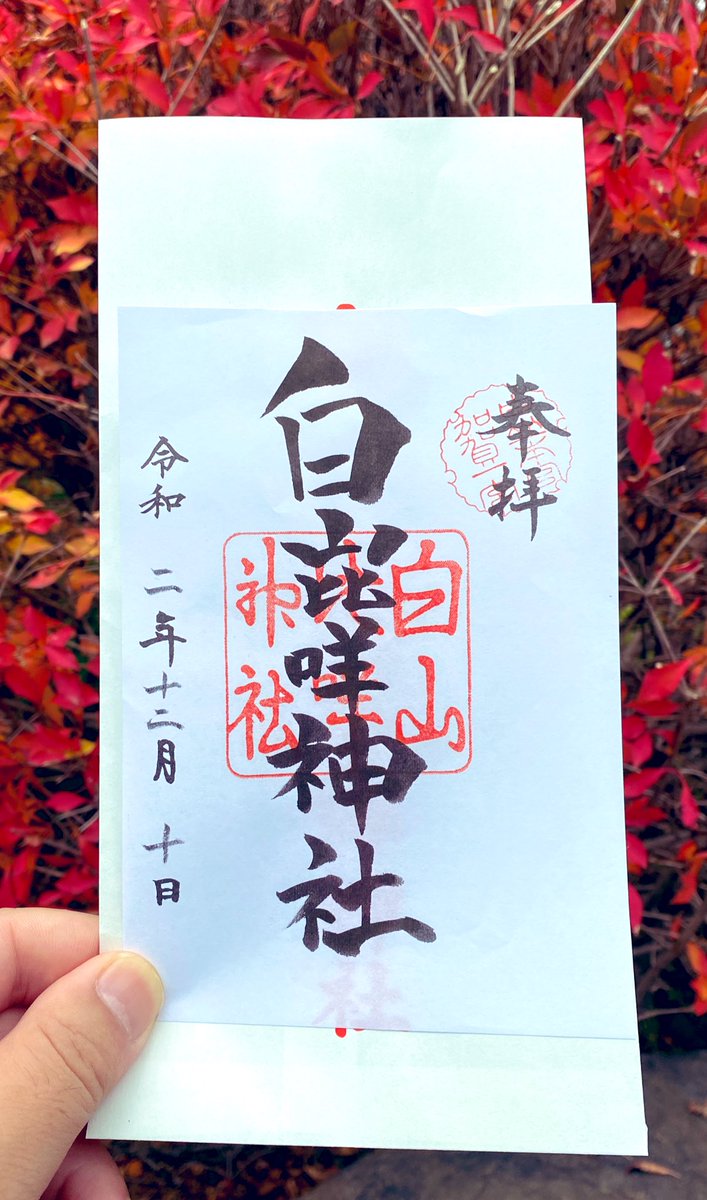 奉拝
白山比咩神社
白山
神社
令和 二年十二月 十日